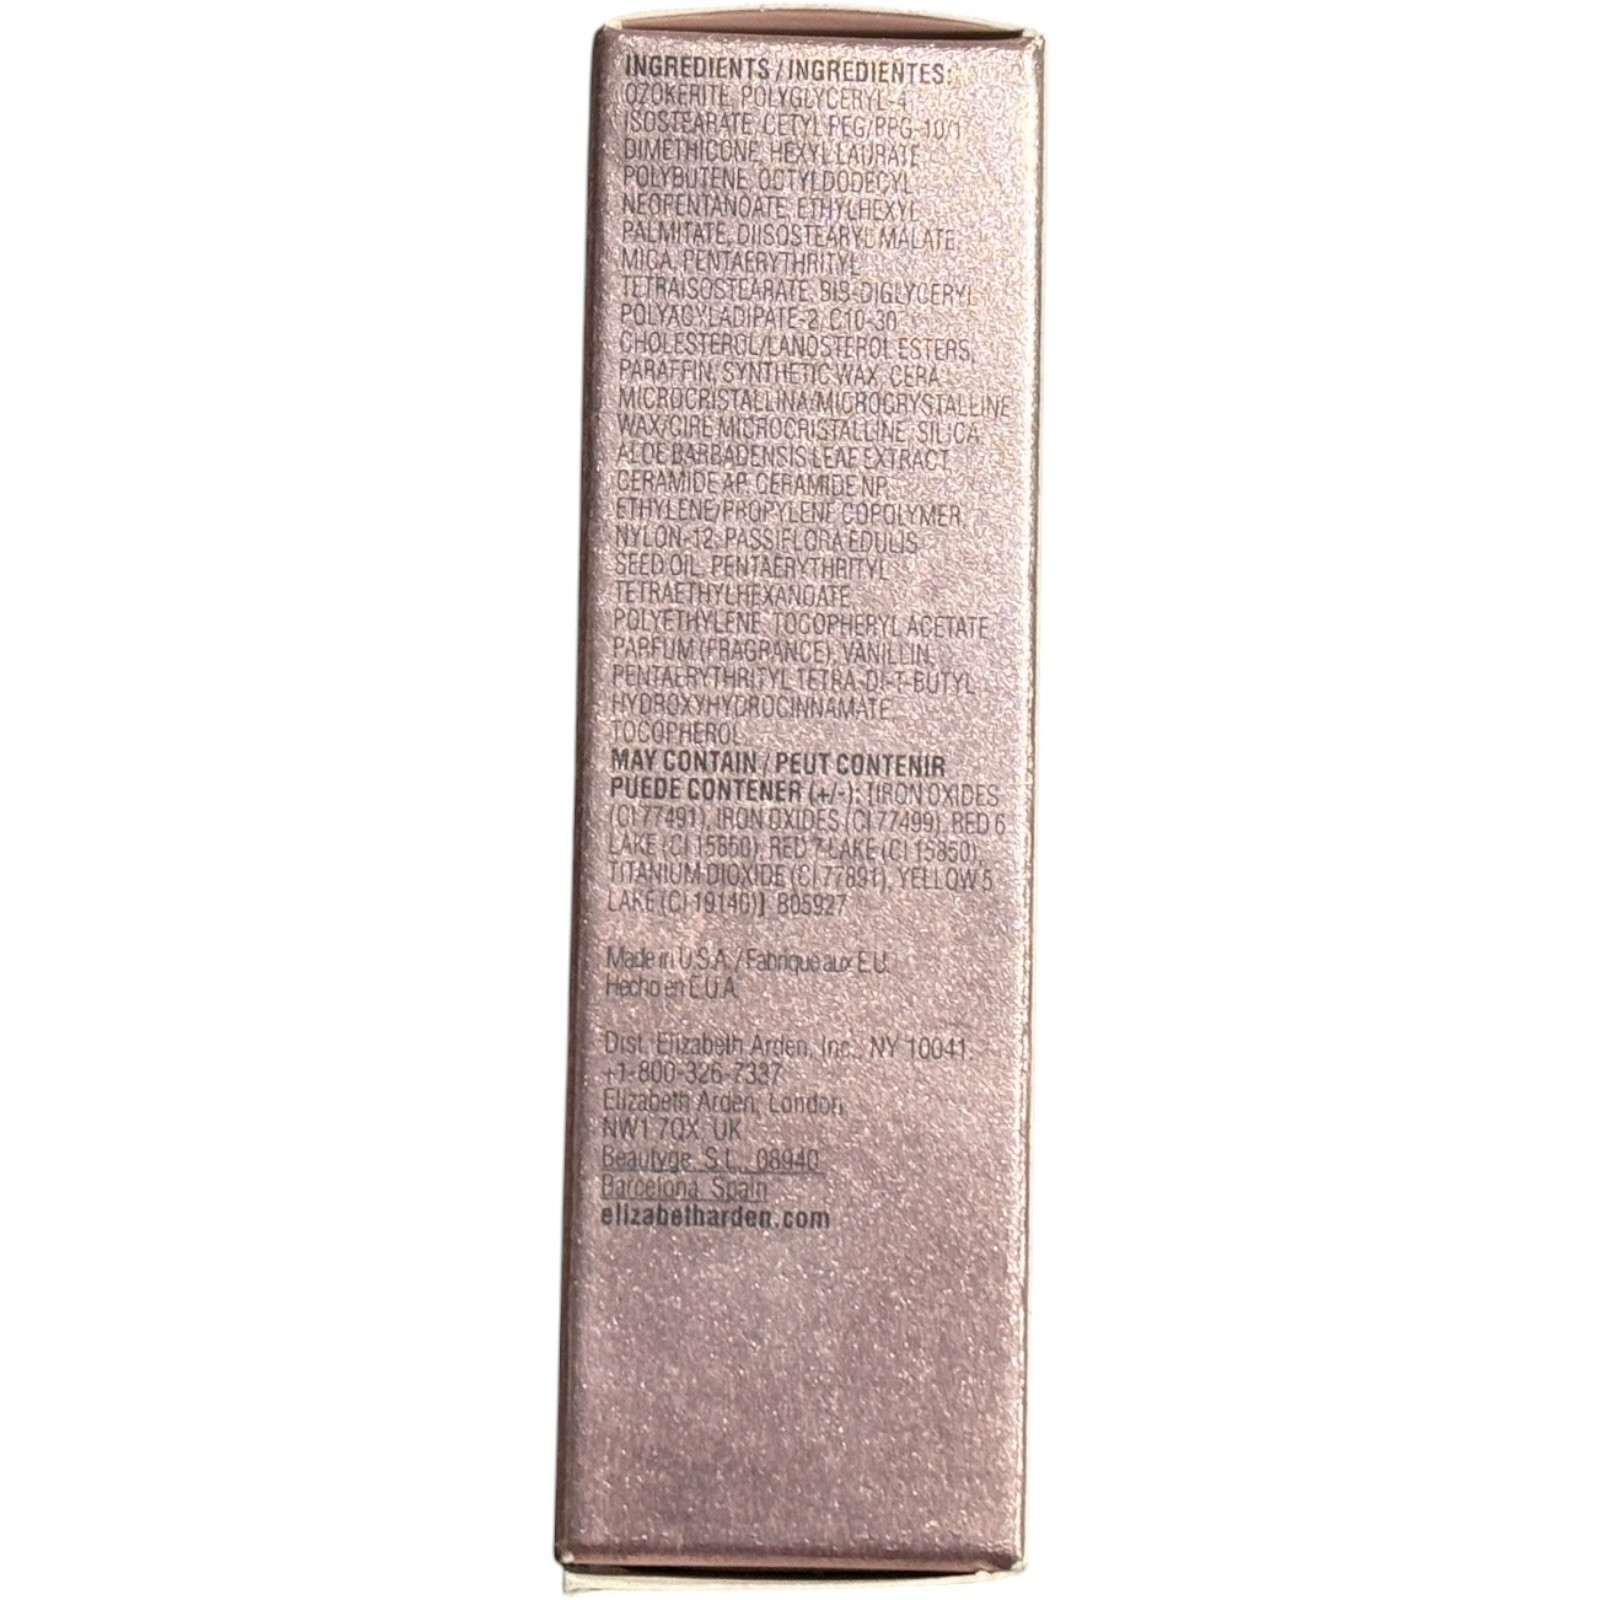 INGREDIENTS / INGREDIENTES:
OZOKERITE, POLYGLYCERYL-4
ISOSTEARATE, CETYL PEG/PPG-10/1
DIMETHICONE, HEXYL LAURATE,
POLYBUTENE, OCTYLDODECYL
NEOPENTANOATE, ETHYLHEXYL
PALMITATE, DIISOSTEARYL MALATE,
MICA, PENTAERYTHRITYL
TETRAISOSTEARATE, BIS-DIGLYCERYL
POLYACYLADIPATE-2, C10-30
CHOLESTEROL/LANOSTEROL ESTERS,
PARAFFIN, SYNTHETIC WAX, CERA
MICROCRISTALLINA/MICROCRYSTALLINE
WAX/CIRE MICROCRISTALLINE, SILICA,
ALOE BARBADENSIS LEAF EXTRACT,
CERAMIDE AP, CERAMIDE NP,
ETHYLENE/PROPYLENE COPOLYMER,
NYLON-12, PASSIFLORA EDULIS
SEED OIL, PENTAERYTHRITYL
TETRAETHYLHEXANOATE,
POLYETHYLENE, TOCOPHERYL ACETATE,
PARFUM (FRAGRANCE), VANILLIN,
PENTAERYTHRITYL TETRA-DI-T-BUTYL
HYDROXYHYDROCINNAMATE,
TOCOPHEROL.
MAY CONTAIN / PEUT CONTENIR
PUEDE CONTENER (+/-): [IRON OXIDES
(CI 77491), IRON OXIDES (CI 77499), RED 6
LAKE (CI 15850), RED 7 LAKE (CI 15850),
TITANIUM DIOXIDE (CI 77891), YELLOW 5
LAKE (CI 19140)]. B05927
Made in U.S.A. / Fabriqué aux É.U.
Hecho en E.U.A.
Dist. Elizabeth Arden, Inc., NY 10041.
+1-800-326-7337
Elizabeth Arden, London
NW1 7QX, UK
Beautyge, S.L., 08940
Barcelona, Spain
elizabetharden.com